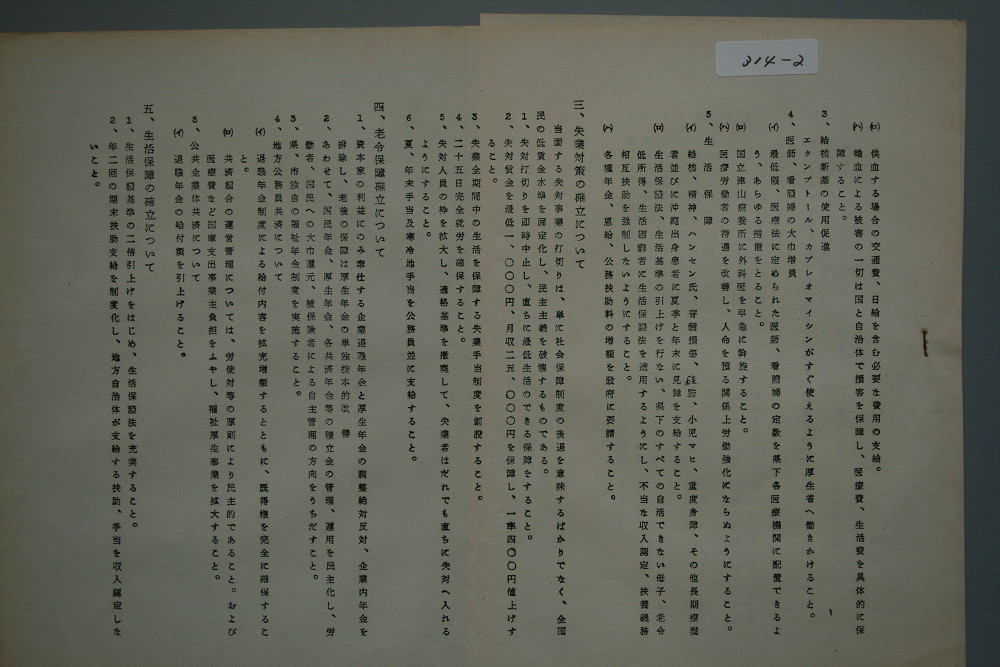 314-2
(ロ) 供血する場合の交通費、日給を含む必要な費用の支給。
(ハ) 輸血による被害の一切は国と自治体で損害を保障し、医療費、生活費を具体的に保
障すること。
3、結核新薬の使用促進
エタンブトール、カプレオマイシンがすぐ使えるように厚生省へ働きかけること。
4、医師、看護婦の大巾増員
(イ) 最低限、医療法に定められた医師、看護婦の定数を県下各医療機関に配置できるよ
う、あらゆる措置をとること。
(ロ) 国立津山療養所に外科医を早急に斡旋すること。
(ハ) 医療労働者の待遇を改善し、人命を預る関係上労働強化にならぬようにすること。
5、生活保障
(イ) 結核、精神、ハンセン氏、脊髄損傷、珪肺、小児マヒ、重度身障、その他長期療養
者並びに沖縄出身患者に夏季と年末に見舞を支給すること。
(ロ) 生活保護法、生活基準の引上げを行ない、県下のすべての自活できない母子、老令
低所得、生活困窮者に生活保護法を適用するようにし、不当な収入認定、扶養義務
相互扶助を強制しないようにすること。
(ハ) 各種年金、恩給、公務扶助料の増額を政府に要請すること。
三、失業対策の確立について
当面する失対事業の打切りは、単に社会保障制度の後退を意味するばかりでなく、全国
民の低賃金水準を固定化し、民主主義を破壊するものである。
1、失対打切りを即時中止し、直ちに最低生活のできる保障をすること。
2、失対賃金を最低一、〇〇〇円、月収二五、〇〇〇円を保障し、一率四〇〇円値上げす
ること。
3、失業全期間中の生活を保障する失業手当制度を創設すること。
4、二十五日完全就労を確保すること。
5、失対人員の枠を拡大し、適格基準を撤廃して、失業者はだれでも直ちに失対へ入れる
ようにすること。
6、夏、年末手当及寒冷地手当を公務員並に支給すること。
四、老令保障確立について
1、資本家の利益にのみ奉仕する企業退職年金と厚生年金の調整絶対反対、企業内年金を
排除し、老後の保障は厚生年金の単独抜本的改善
2、あわせて、国民年金、厚生年金、各共済年金等の積立金の管理、運用を民主化し、労
働者、国民への大巾還元、被保険者による自主管理の方向をうちだすこと。
3、県、市独自の福祉年金制度を実施すること。
4、地方公務員共済について
(イ) 退職年金制度による給付内容を拡充増額するとともに、既得権を完全に確保するこ
と。
(ロ) 共済組合の運営管理については、労使対等の原則により民主的であること。および
医療費など国庫支出事業主負担をふやし、福祉厚生事業を拡大すること。
5、公共企業体共済について
(イ) 退職年金の給付額を引上げること。
五、生活保障の確立について
1、生活保護基準の二倍引上げをはじめ、生活保護法を充実すること。
2、年二回の期末扶助支給を制度化し、地方自治体が支給する扶助、手当を収入認定しな
いこと。